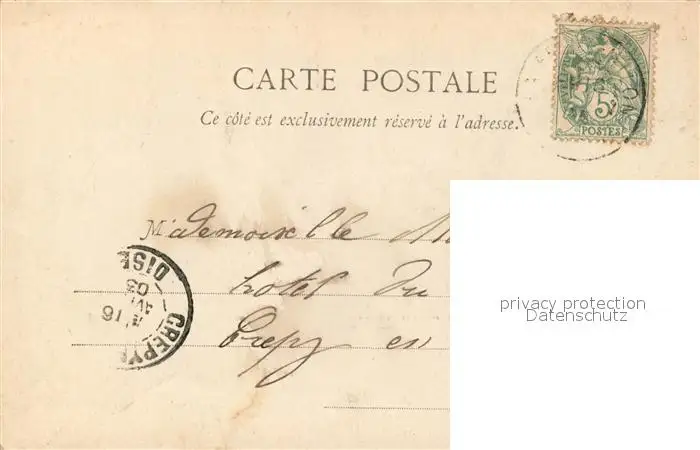 CARTE POSTALE
Ce côté est exclusivement réservé à l'adresse.
5
POSTES
Mademoiselle
hotel Du
Crepy en
CREPY
OISE
16
03
privacy protection
Datenschutz